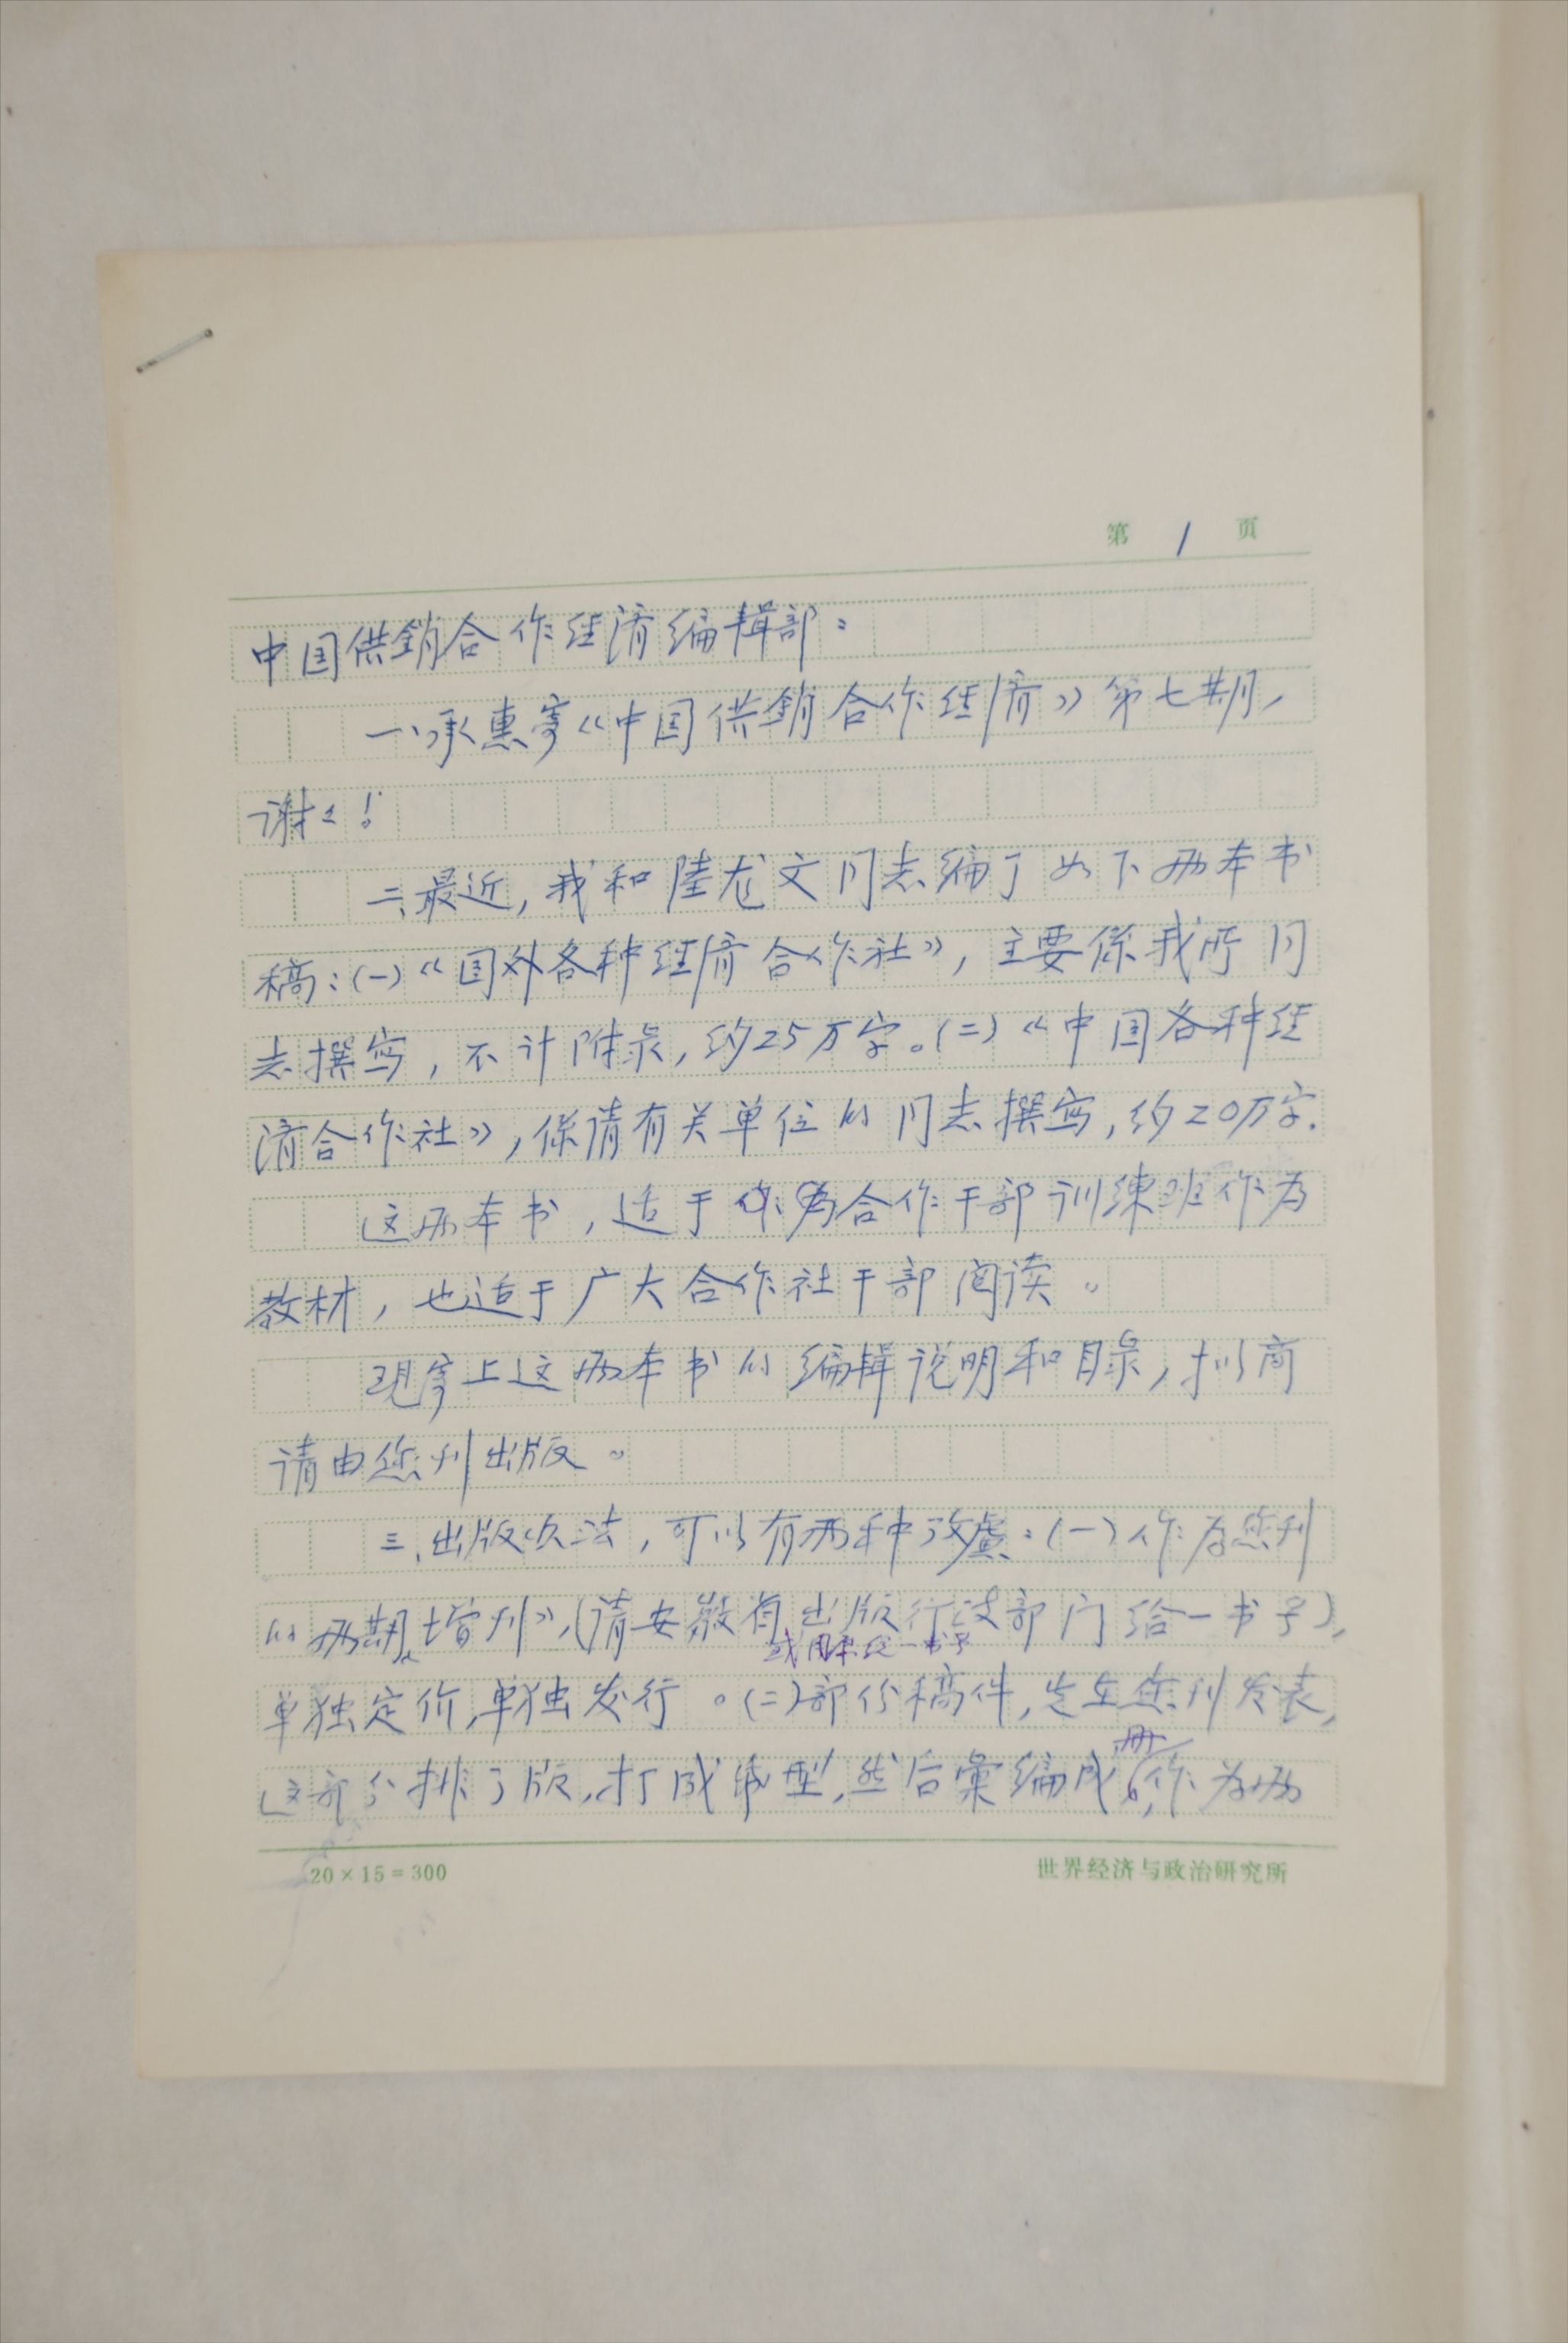 第 1 页
中国供銷合作经济编輯部：
一、承惠寄《中国供銷合作经济》第七期，
谢々！
二、最近，我和陸龙文同志编了如下两本书
稿：(一)《国外各种经济合作社》，主要係我所同
志撰写，不计附录，约25万字。(二)《中国各种经
济合作社》，係请有关单位的同志撰写，约20万字.
这两本书，适于作为合作干部训練班作为
教材，也适于广大合作社干部阅读。
现寄上这两本书的编辑说明和目录，拟商
请由您刊出版。
三、出版办法，可以有两种攷慮：(一)作为您刊
的两期增刊》，(请安徽省出版行政部门给一书号)，
或用 一书号
单独定价，单独发行。(二)部份稿件，先在您刊发表，
册
这部分排了版，打成纸型，然后彙编成，作为两
20×15=300 世界经济与政治研究所